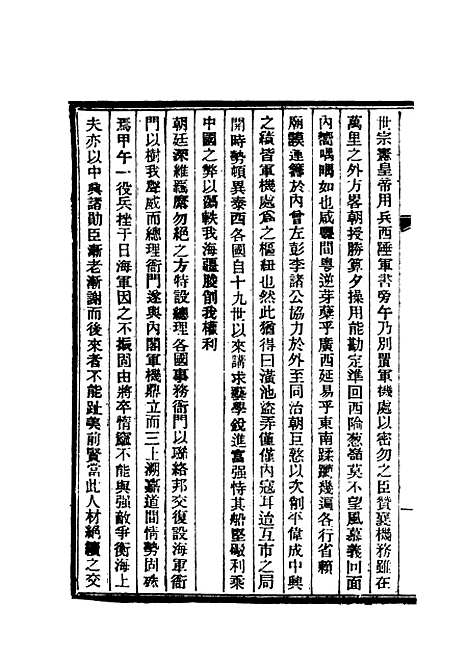 世宗憲皇帝用兵西陲軍書旁午乃別置軍機處以密勿之臣贊襄機務雖在
萬里之外方畧朝授勝算夕操用能勘定準回西險葱嶺莫不望風慕義回面
內嚮喁喁如也咸豐間粵逆芽櫱乎廣西延易乎東南蹂躪幾遍各行省賴
廟謨運籌於內曾左彭李諸公協力於外至同治朝巨憝以次削平偉成中興
之績皆軍機處爲之樞紐也然此猶得曰潢池盜弄僅僅內寇耳迨互市之局
開時勢頓異泰西各國自十九世以來講求藝學銳進富强恃其船堅礮利乘
中國之弊以蕩軼我海疆朘削我權利
朝廷深維羈縻勿絕之方特設總理各國事務衙門以聯絡邦交復設海軍衙
門以樹我聲威而總理衙門遂與內閣軍機鼎立而三上溯嘉道間情勢固殊
焉甲午一役兵挫于日海軍因之不振固由將卒惰窳不能與强敵爭衡海上
夫亦以中興諸勛臣漸老漸謝而後來者不能趾美前賢當此人材絕續之交